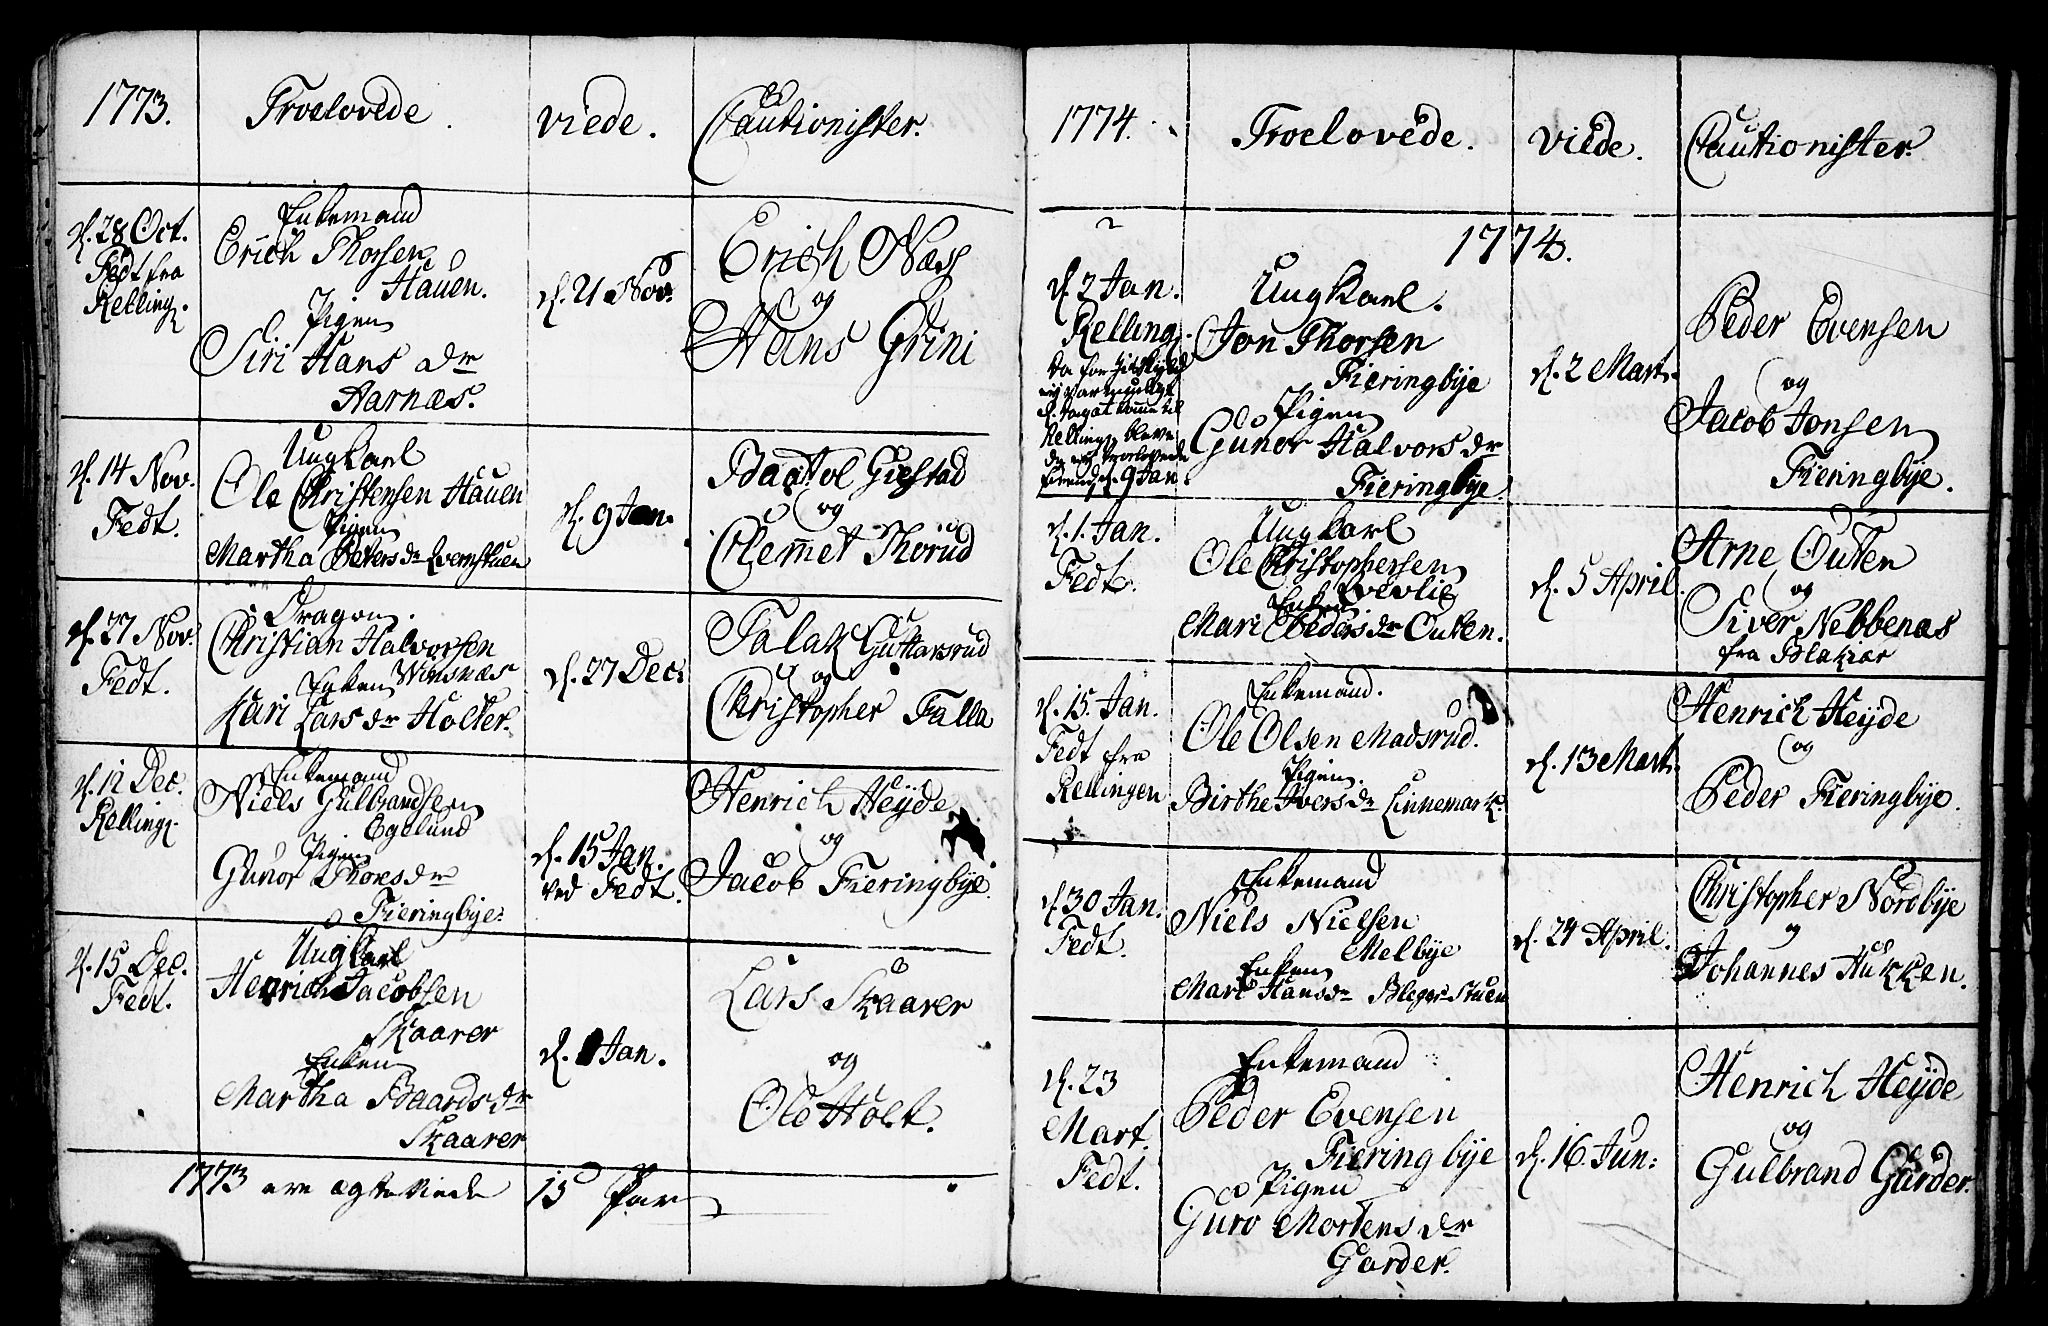 1773.
Troelovede.
viede.
Cautionister.
d. 28 Oct.
Fedt fra
Relling.
Enkemand
Erich Thorsen
Hauen.
Pigen
Siri Hans dr
Aarnæs.
d. 21 Nov.
Erich Næss
og
Hans Grini
d. 14 Nov.
Fedt.
Ungkarl
Ole Christensen Hauen
Pigen
Martha Peters dr
d. 9 Jan.
Baatol Giestad
og
Clem̄et Thorud
d. 27 Nov.
Fedt.
Dragon.
Christian Halvorsen
Winsnæs
Enken
Kari Lars dr Holter.
d. 27 Dec:
Falak Guttarsrud
og
Christopher Falla
d. 12 Dec.
Relling.
Enkemand
Niels Gulbrandsen
Egelund
Pigen
Gunor Thores dr
Fieringbye.
d. 15 Jan.
ved Fedt.
Henrich Heyde
og
Jacob Fieringbye.
d. 15 Dec.
Fedt.
Ungkarl
Henrich Jacobsen
Skaarer
Enken
Martha Baards dr
Skaarer
d. 1 Jan.
Lars Skaarer
og
Ole Holt.
1773 ere ægteviede 15 Par
1774.
Troelovede.
viede.
Cautionister.
1774.
d. 2 Jan.
Relling.
da for
ey var mueligt
d. dag at komme til
Relling, bleve
de troelovede
d. 9 Jan.
Ungkarl.
Jon Thorsen
Fieringbye
Pigen
Gunor Halvors dr
Fieringbye.
d. 2 Mart.
Peder Evensen
og
Jacob Jonsen
Fieringbye.
d. 1. Jan.
Fedt.
Ungkarl
Ole Christophersen
Lovlie
Enken
Mari Peders dr Outen.
d. 5 April.
Arne Outen
og
Siver Nebbenæs
fra Blakiær
d. 15. Jan.
Fedt fra
Rellingen
Enkemand.
Ole Olsen Madsrud.
Pigen.
Birthe Ivers dr Linnemark.
d. 13 Mart.
Henrich Heyde
og
Peder Fieringbye.
d. 30 Jan.
Fedt.
Enkemand
Niels Nielsen
Melbye
Enken
Mari Hans dr
d. 24 April.
Christopher Nordbye
og
Johannes Hukken.
d. 23
Mart.
Fedt.
Enkemand
Peder Evensen
Fieringbye
Pigen
Guro Mortens dr
Garder.
d. 16. Jun:
Henrich Heyde
og
Gulbrand Garder.